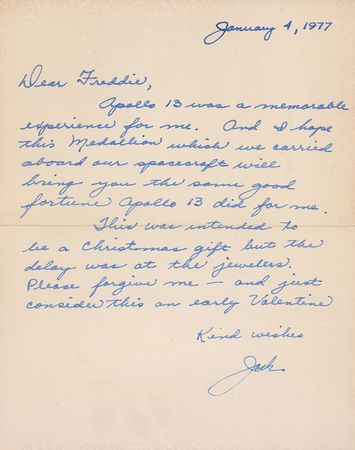 January 4, 1977
Dear Freddie,
Apollo 13 was a memorable
experience for me. And I hope
this Medallion which we carried
aboard our spacecraft will
bring you the same good
fortune Apollo 13 did for me.
This was intended to
be a Christmas gift but the
delay was at the jewelers.
Please forgive me — and just
consider this an early Valentine
Kind wishes
Jack